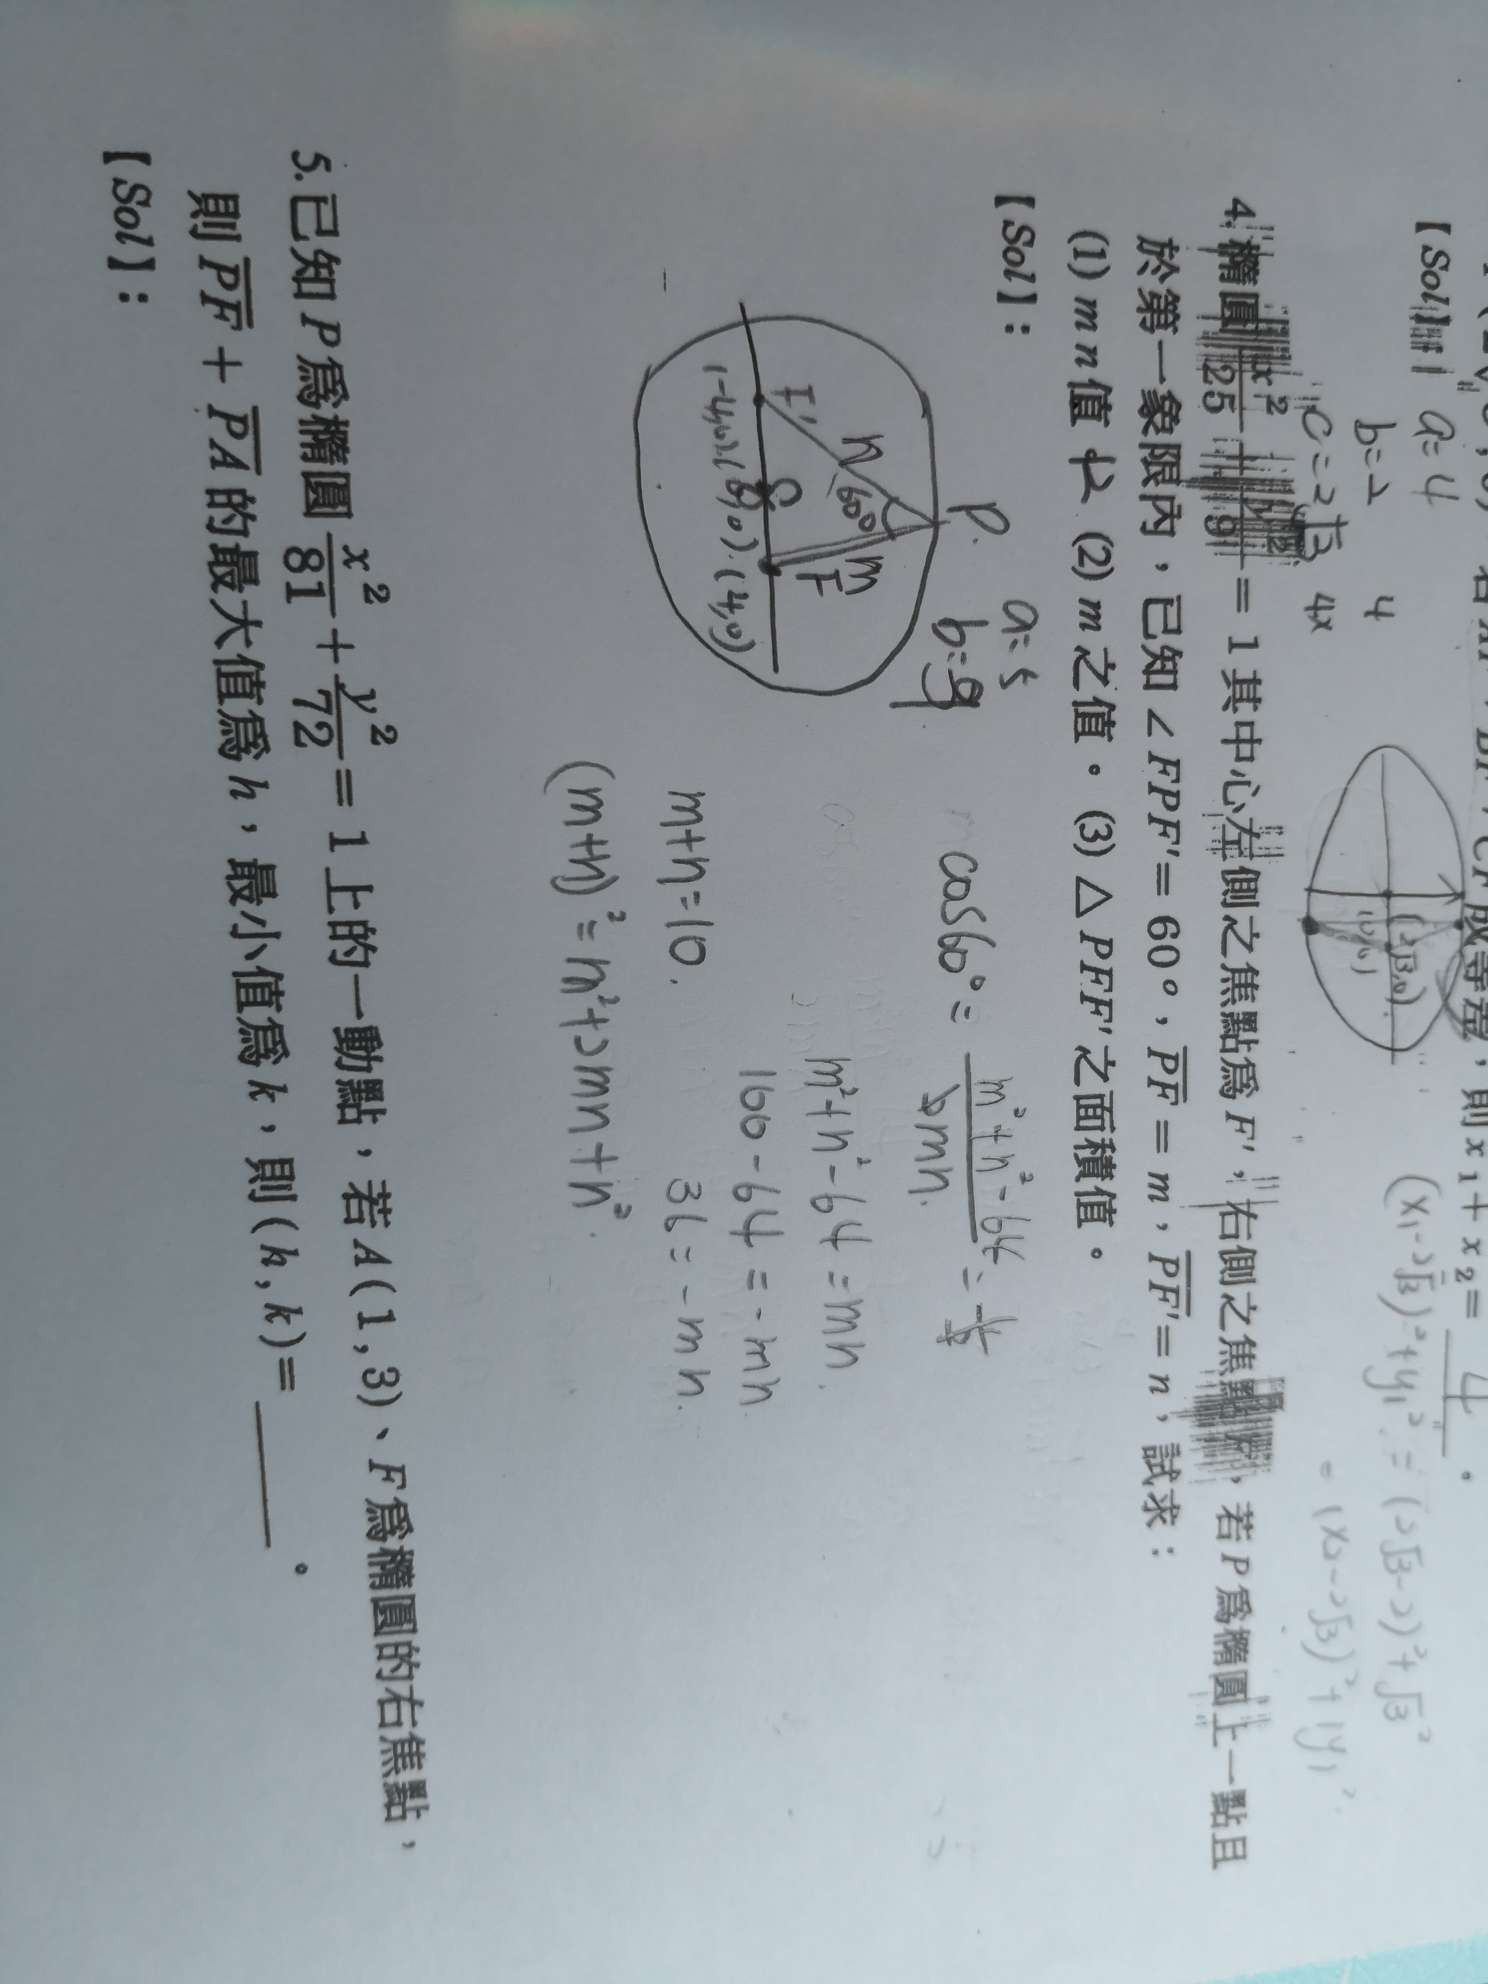 【Sol】: a=4
b=2 4
c=2√3 4x
(x₁-2√3)²+y₁² = (2√3-2)²+√3²
=(x₂-2√3)²+(y₁)²
(2√3,0)
成等差，則 x₁+x₂= 4 。
4.橢圓 x²/25 + y²/9 = 1 其中心左側之焦點為 F'，右側之焦點 F，若 P 為橢圓上一點且
於第一象限內，已知∠FPF'=60°，PF=m，PF'=n，試求：
(1) mn值 (2) m之值。(3)△PFF'之面積值。
【Sol】:
P. a=5
b=9
n 60° m
F' O F
(-4,0) (0,0) (4,0)
cos60°= (m²+n²-64)/2mn = 1/2
m²+n²-64=mn.
100-64=-mn
m+n=10. 36=-mn.
(m+n)²=m²+2mn+n².
5.已知 P 為橢圓 x²/81 + y²/72 = 1 上的一動點，若 A(1,3)、F 為橢圓的右焦點，
則 PF + PA 的最大值為 h，最小值為 k，則(h,k)=______。
【Sol】: